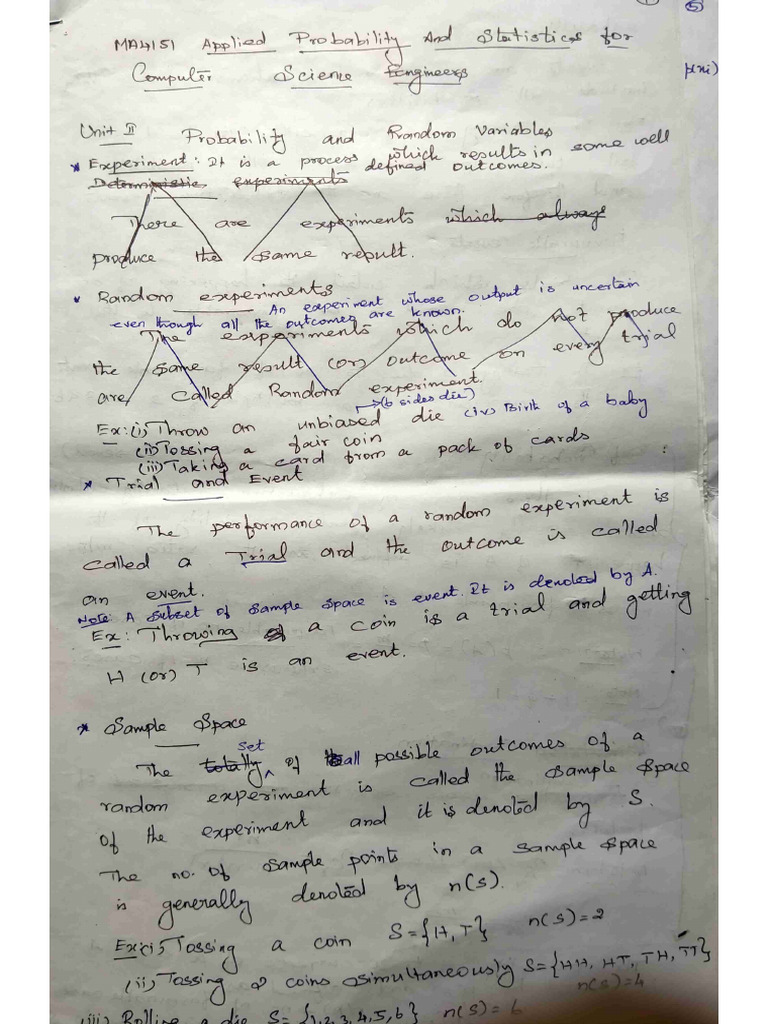 5
MA4151 Applied Probability And Statistics for
Computer Science Engineers
p(xi)
Unit II Probability and Random Variables
* Experiment: It is a process which results in some well
defined outcomes.
Deterministic experiments
There are experiments which always
produce the same result.
* Random experiments
An experiment whose output is uncertain
even though all the outcomes are known.
The experiments which do not produce
the same result (or) outcome on every trial
are called Random experiment.
→(6 sides die)
Ex:(i) Throw an unbiased die (iv) Birth of a baby
(ii) Tossing a fair coin
(iii) Taking a card from a pack of cards
* Trial and Event
The performance of a random experiment is
called a Trial and the outcome is called
an event.
Note: A subset of sample space is event. It is denoted by A.
Ex: Throwing of a coin is a trial and getting
H (or) T is an event.
* Sample Space
The totally set of all possible outcomes of a
random experiment is called the sample space
of the experiment and it is denoted by S.
The no. of sample points in a sample space
is generally denoted by n(s).
Ex:(i) Tossing a coin S={H,T} n(s)=2
(ii) Tossing 2 coins simultaneously S={HH, HT, TH, TT}
n(s)=4
(iii) Rolling a die S= {1,2,3,4,5,6} n(s)=6